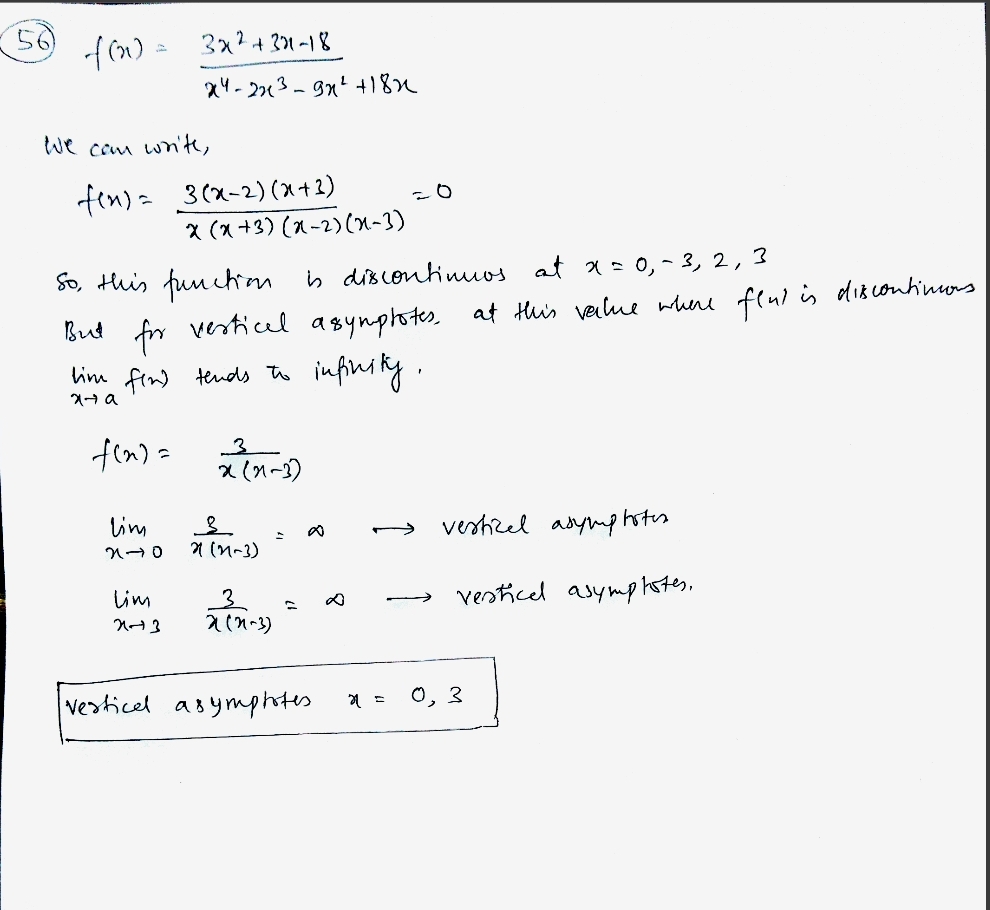 56 f(x) = 3x² + 3x - 18 / x⁴ - 2x³ - 9x² + 18x
We can write,
f(x) = 3(x-2)(x+3) / x(x+3)(x-2)(x-3) = 0
So, this function is discontinuos at x = 0, -3, 2, 3
But for vertical asymptotes, at this value where f(x) is discontinuos
lim x→a f(x) tends to infinity.
f(x) = 3 / x(x-3)
lim x→0 3 / x(x-3) = ∞ → vertical asymptotes
Lim x→3 3 / x(x-3) = ∞ → vertical asymptotes.
vertical asymptotes x = 0, 3